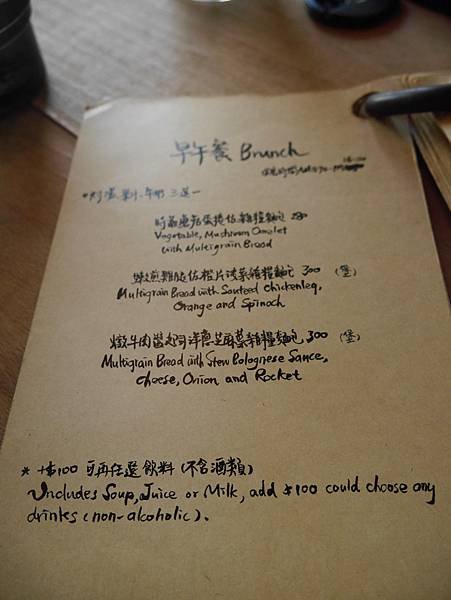 早午餐 Brunch
三選一
時蔬蘑菇蛋捲佐雜糧麵包 280
Vegetable, Mushroom Omelet
with Multigrain Bread
雜糧麵包 300 (堡)
Multigrain Bread with Sauteed Chickenleg,
Orange and Spinach
燉牛肉醬起司洋蔥芝麻葉雜糧麵包 300 (堡)
Multigrain Bread with Stew Bolognese Sauce,
cheese, Onion and Rocket
* +$100 可再任選飲料 (不含酒類)
Includes Soup, Juice or Milk, add $100 could choose any
drinks (non-alcoholic).